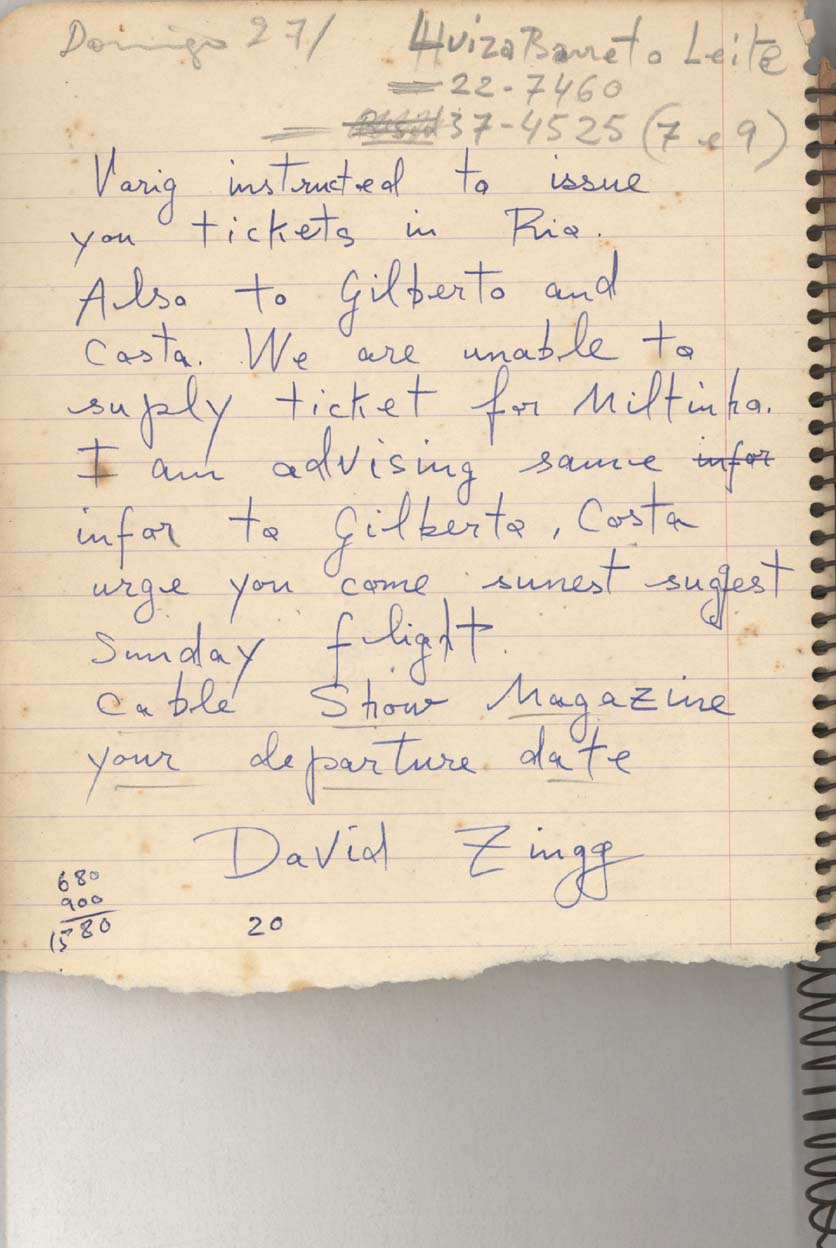 Domigo 27/ Luiza Barreto Leite
22-7460
37-4525 (7 e 9)
Varig instructed to issue
you tickets in Rio.
Also to Gilberto and
Costa. We are unable to
suply ticket for Miltinho.
I am advising same infor
infor to Gilberto, Costa
urge you come sunest sugest
Sunday flight
cable Show Magazine
your departure date
David Zingg
680
900
1580 20